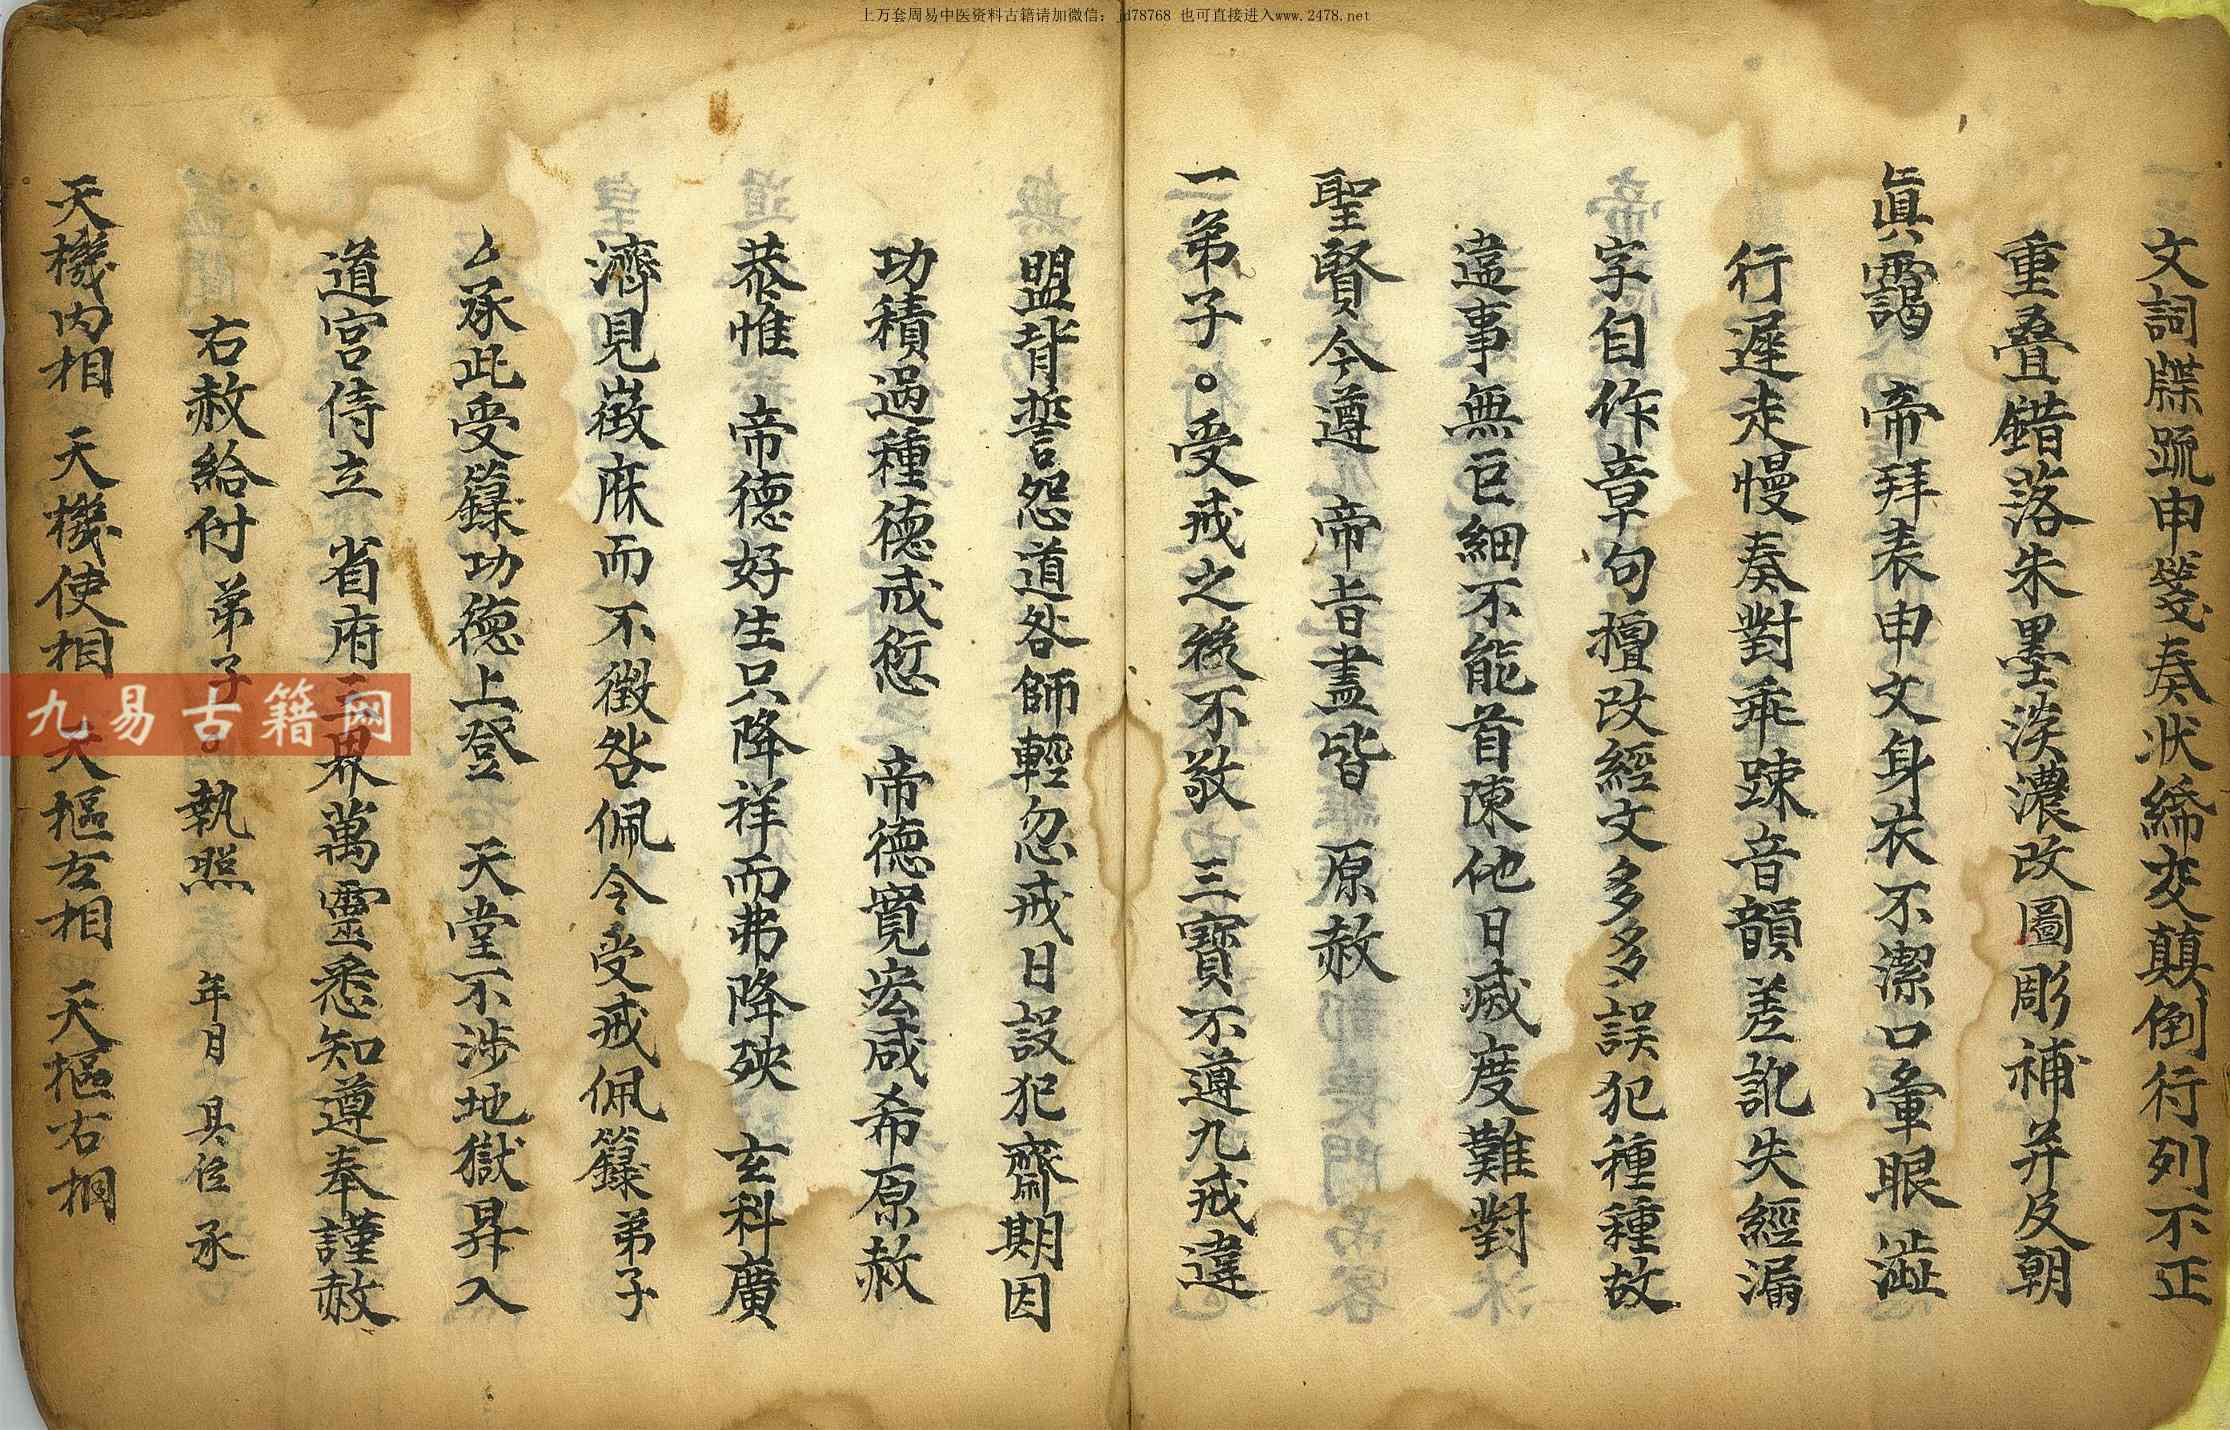 上万套周易中医资料古籍请加微信：jd78768 也可直接进入www.2478.net
文詞牒疏申箋奏狀締交顛倒行列不正
重叠錯落朱墨淡濃改圖彫補并及朝
眞靄謁 帝拜表申文身衣不潔口暈眼澁
行遲走慢奏對乖踈音韻差訛失經漏
字自作章句擅改經文多多誤犯種種故
違事無巨細不能首陳他日滅度難對
聖賢今遵 帝旨盡皆 原赦
一弟子。受戒之後不敬 三寶不遵九戒違
盟背誓怨道咎師輕忽戒日設犯齋期因
功積過種德戒愆 帝德寬宏咸希原赦
恭惟 帝德好生只降祥而弗降殃 玄科廣
濟見徵庥而不徵咎佩令受戒佩籙弟子
厶承此受籙功德上登 天堂不涉地獄昇入
道宮侍立 省府三界萬靈悉知遵奉謹赦
右赦給付 弟子。執照 年月 具位 承
天機內相 天機使相 天樞左相 天樞右相
九易古籍网